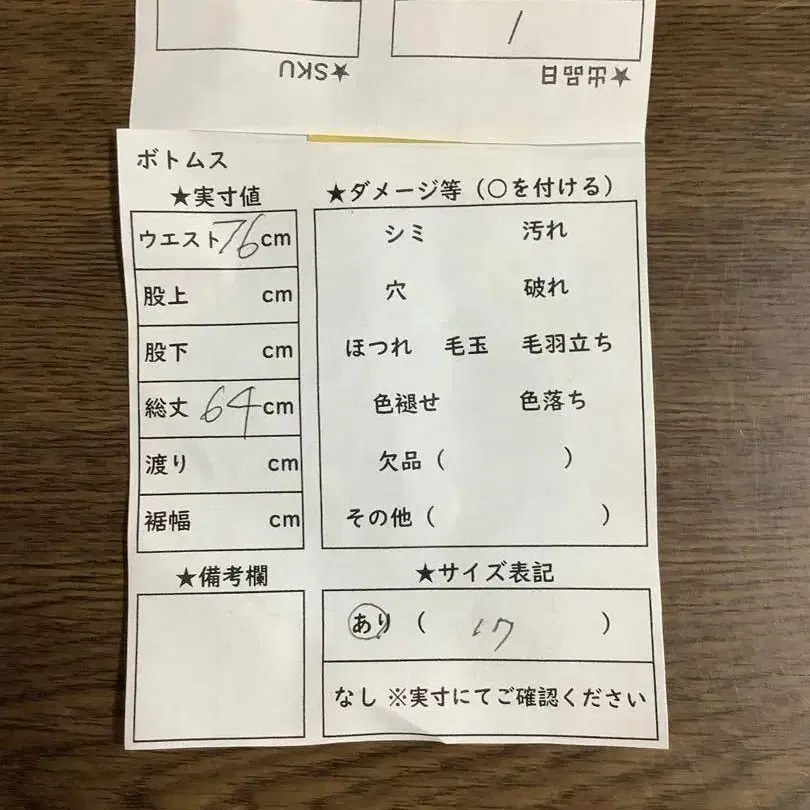 /
★SKU ★出品日
ボトムス
★実寸値 ★ダメージ等（○を付ける）
ウエスト 76 cm
股上 cm
股下 cm
総丈 64 cm
渡り cm
裾幅 cm
シミ 汚れ
穴 破れ
ほつれ 毛玉 毛羽立ち
色褪せ 色落ち
欠品（ ）
その他（ ）
★備考欄 ★サイズ表記
あり（ 17 ）
なし ※実寸にてご確認ください